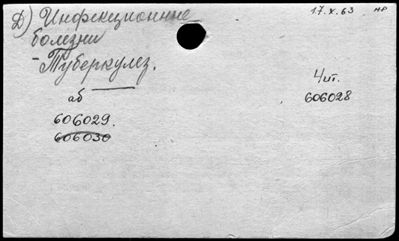 Д) Инфекционные
17.X.63 нр
болезни
- Туберкулез.
аб
4 ит.
606029.
606028
606030